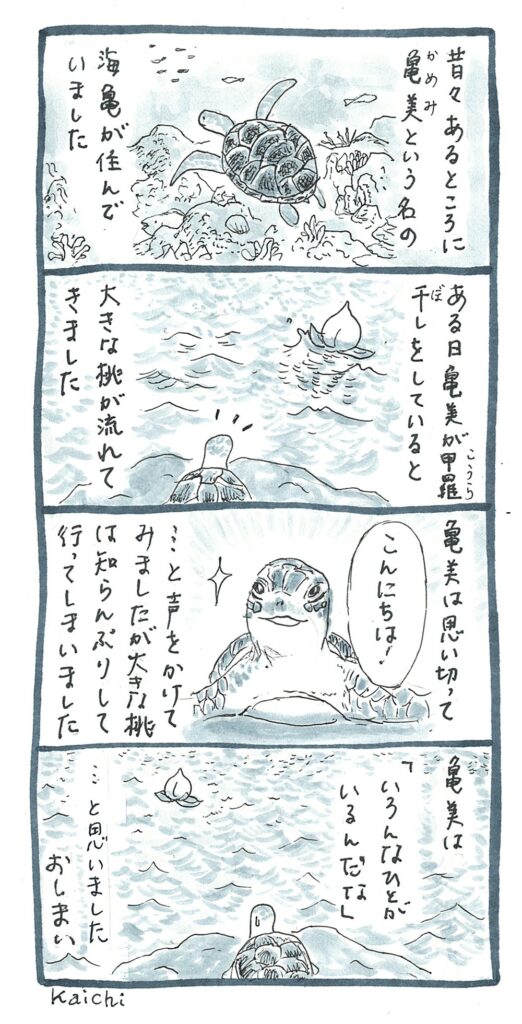 昔々あるところに
亀美という名の
かめみ
海亀が住んで
いました
ある日亀美が甲羅
こうら
干しをしていると
ぼ
大きな桃が流れて
きました
亀美は思い切って
こんにちは!
…と声をかけて
みましたが大きな桃
は知らんぷりして
行ってしまいました
亀美は
「いろんなひとが
いるんだな」
…と思いました
おしまい
Kaichi